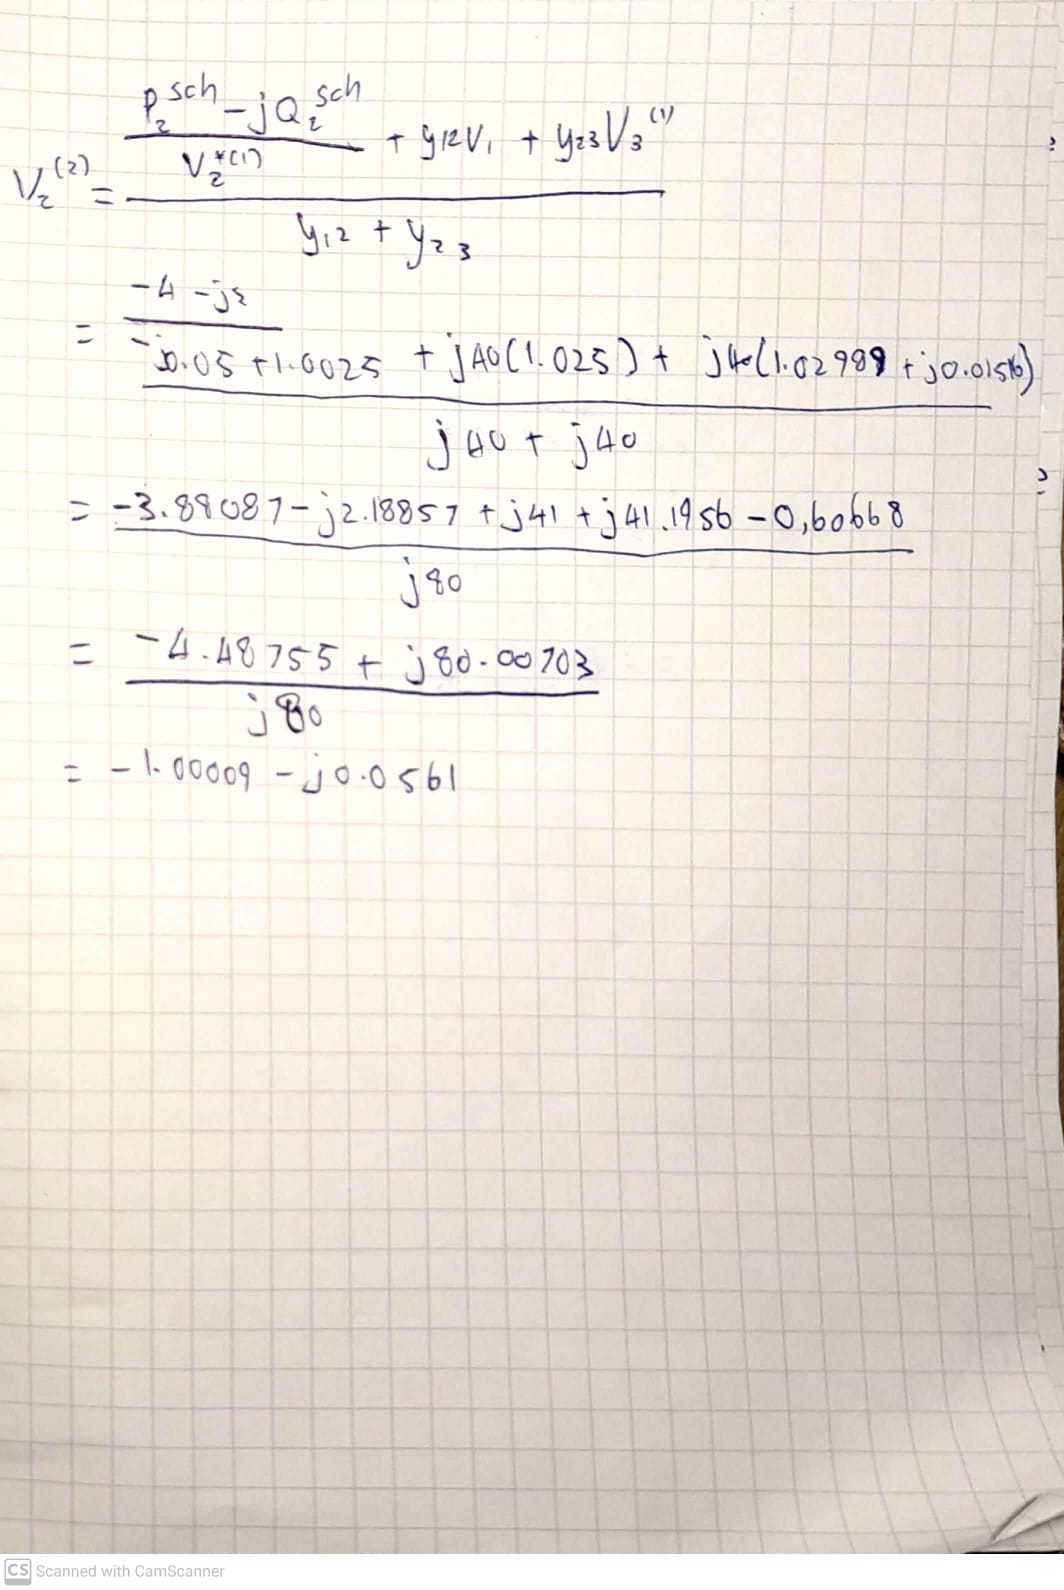 V₂⁽²⁾ = ((P₂ˢᶜʰ - jQ₂ˢᶜʰ) / V₂*⁽¹⁾ + y₁₂V₁ + y₂₃V₃⁽¹⁾) / (y₁₂ + y₂₃)
= ((-4 - j2) / (-j0.05 + 1.0025) + j40(1.025) + j40(1.02989 + j0.01516)) / (j40 + j40)
= (-3.88087 - j2.18857 + j41 + j41.1956 - 0,60668) / j80
= (-4.48755 + j80.00703) / j80
= -1.00009 - j0.0561
CS Scanned with CamScanner